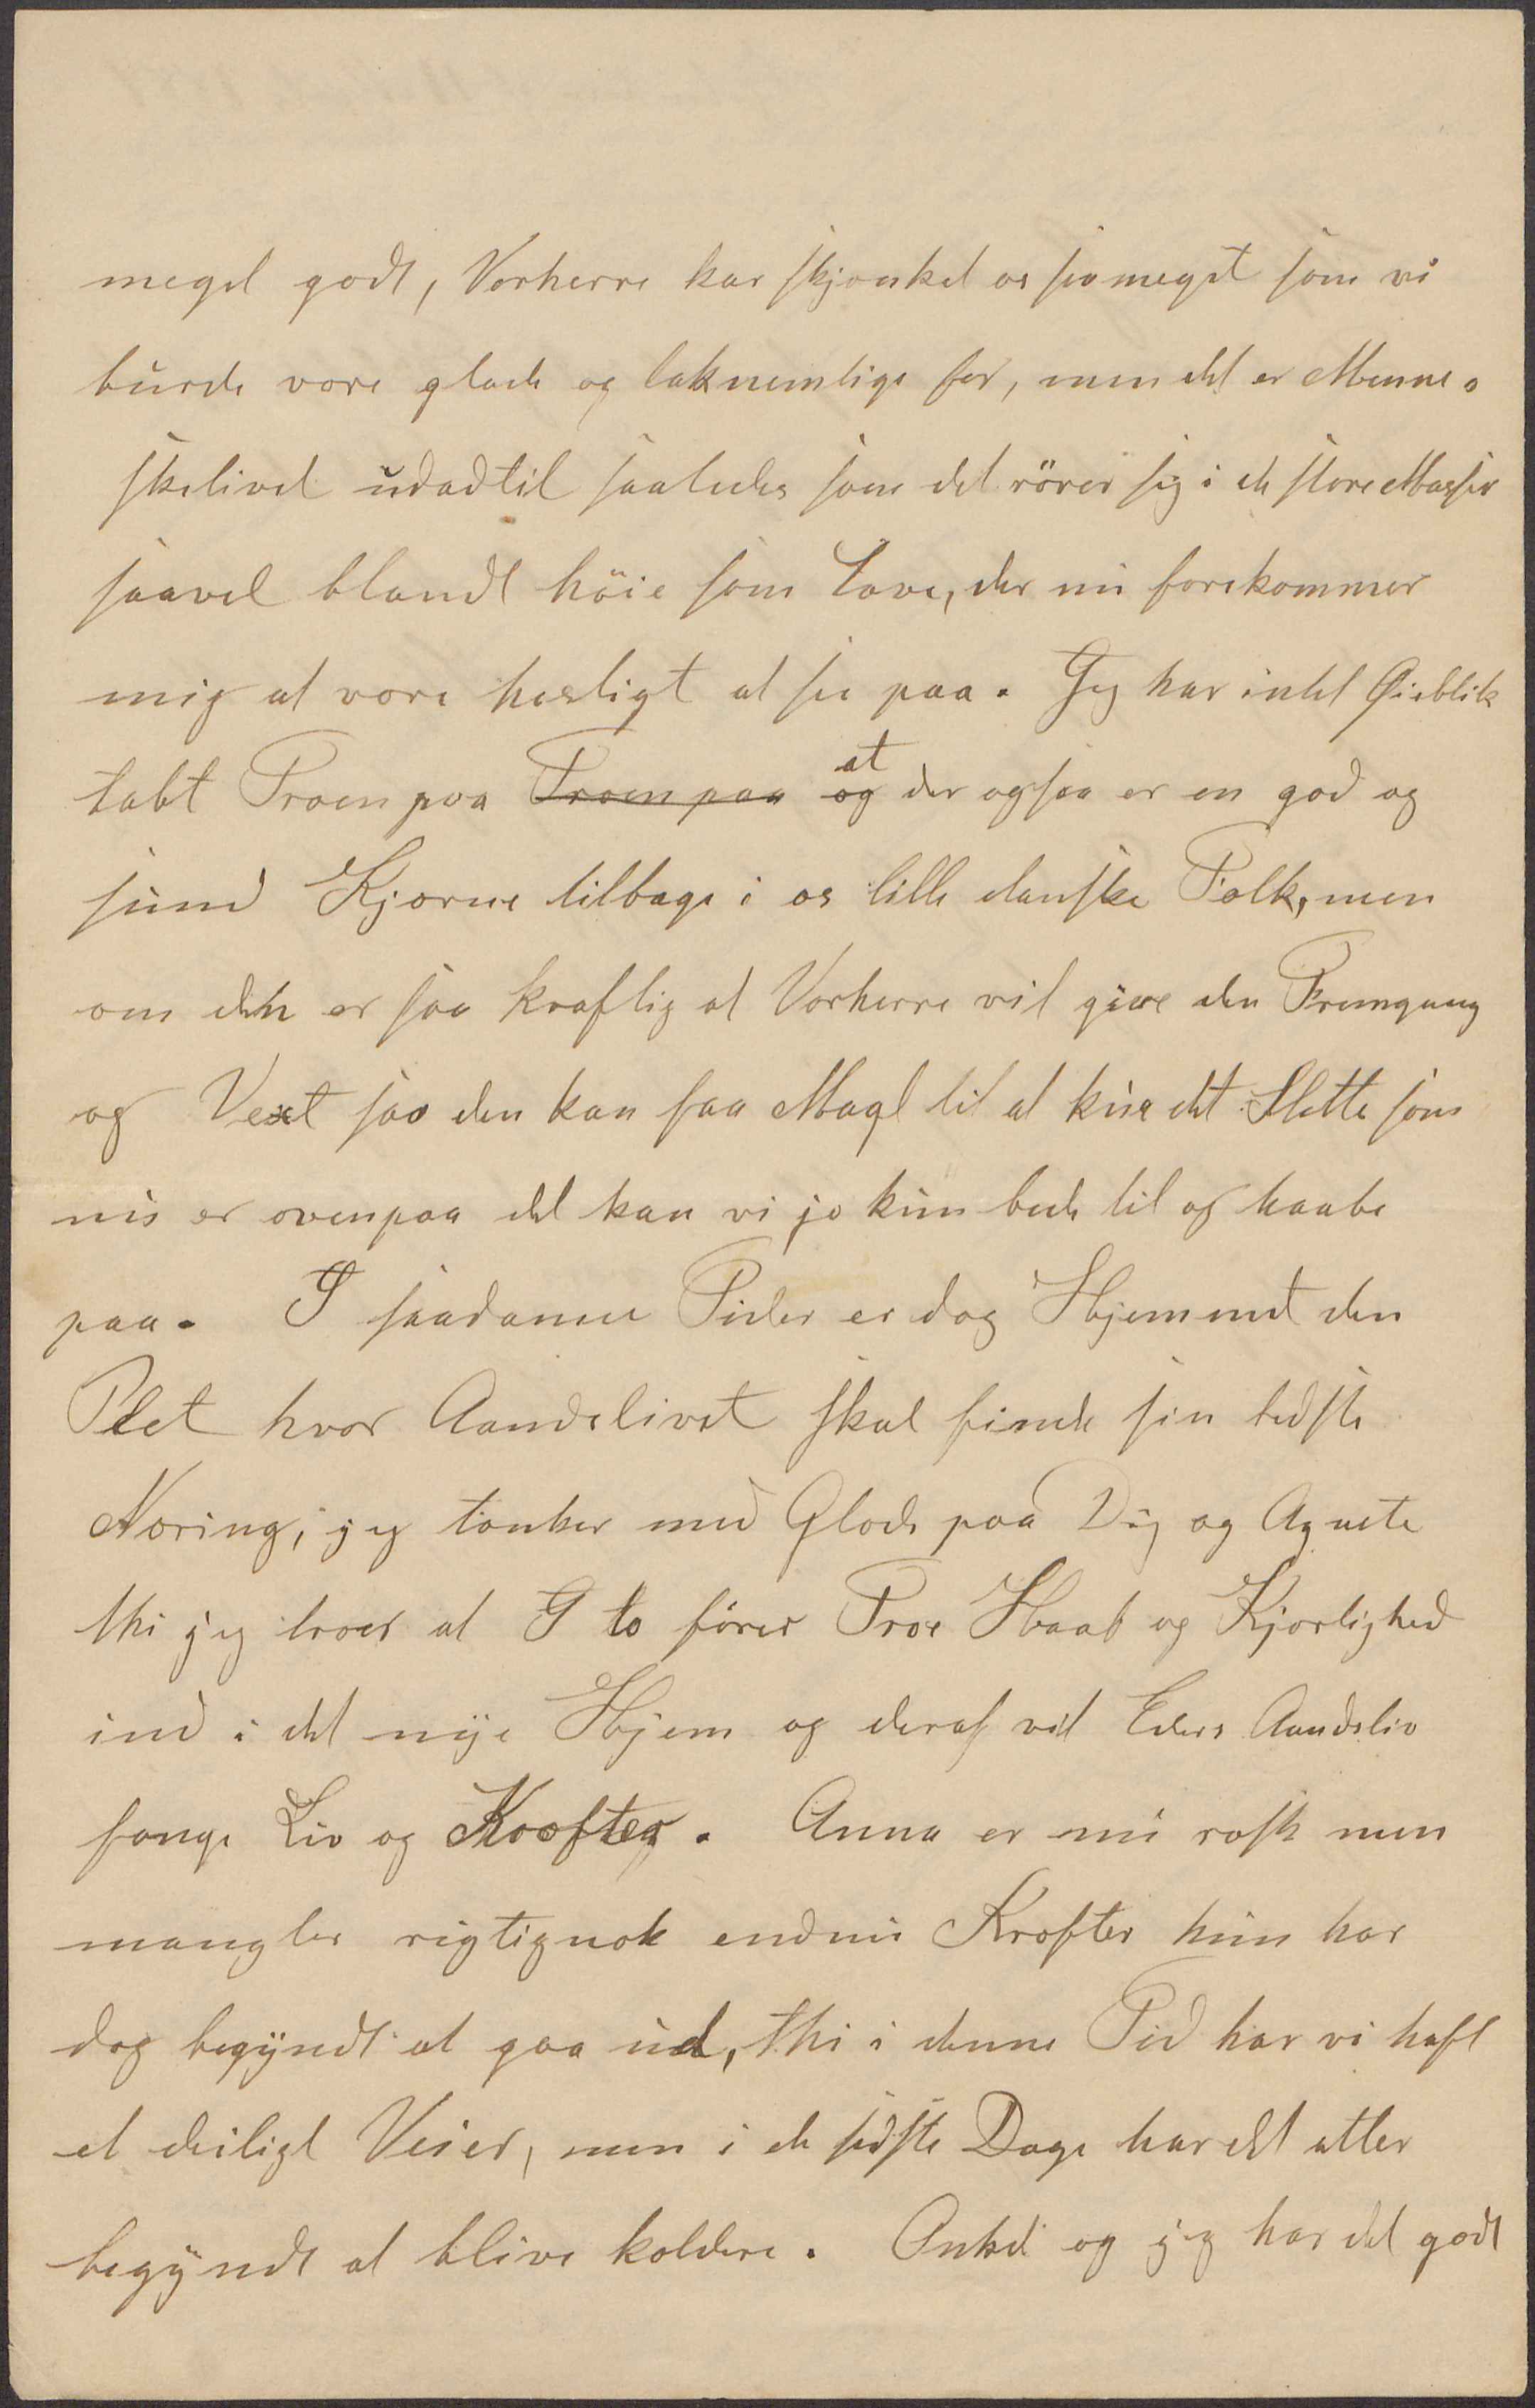 meget godt, Vorherre har skjænket os saa meget som vi
burde være glade og taknemlige for, men det er Menne-
skelivet udadtil saaledes som det rörer sig i de store Masser
saavel blandt höie som lave, der nu forekommer
mig at være hæsligt at see paa. Jeg har intet Øieblik
tabt Troen paa ~~Troen paa~~ at ~~og~~ der ogsaa er en god og
sund Kjærne tilbage i os lille danske Folk, men
om den er saa kraftig at Vorherre vil give den Fremgang
og Vext saa den kan faa Magt til at kue det Slette som
nu er ovenpaa det kan vi jo kun bede til og haabe
paa. I saadanne Tider er dog Hjemmet den
Plet hvor Aandslivet skal finde sin bedste
Næring, jeg tænker med Glæde paa Dig og Agnete
thi jeg troer at I to fører Troe Haab og Kjærlighed
ind i det nye Hjem og deraf vil Eders Aandsliv
fange Liv og Kræfter. Anna er nu rask men
mangler rigtignok endnu Kræfter hun har
dog begyndt at gaa ud, thi i denne Tid har vi haft
et deiligt Veier, men i de sidste Dage har det atter
begyndt at blive koldere. Onkel og jeg har det godt